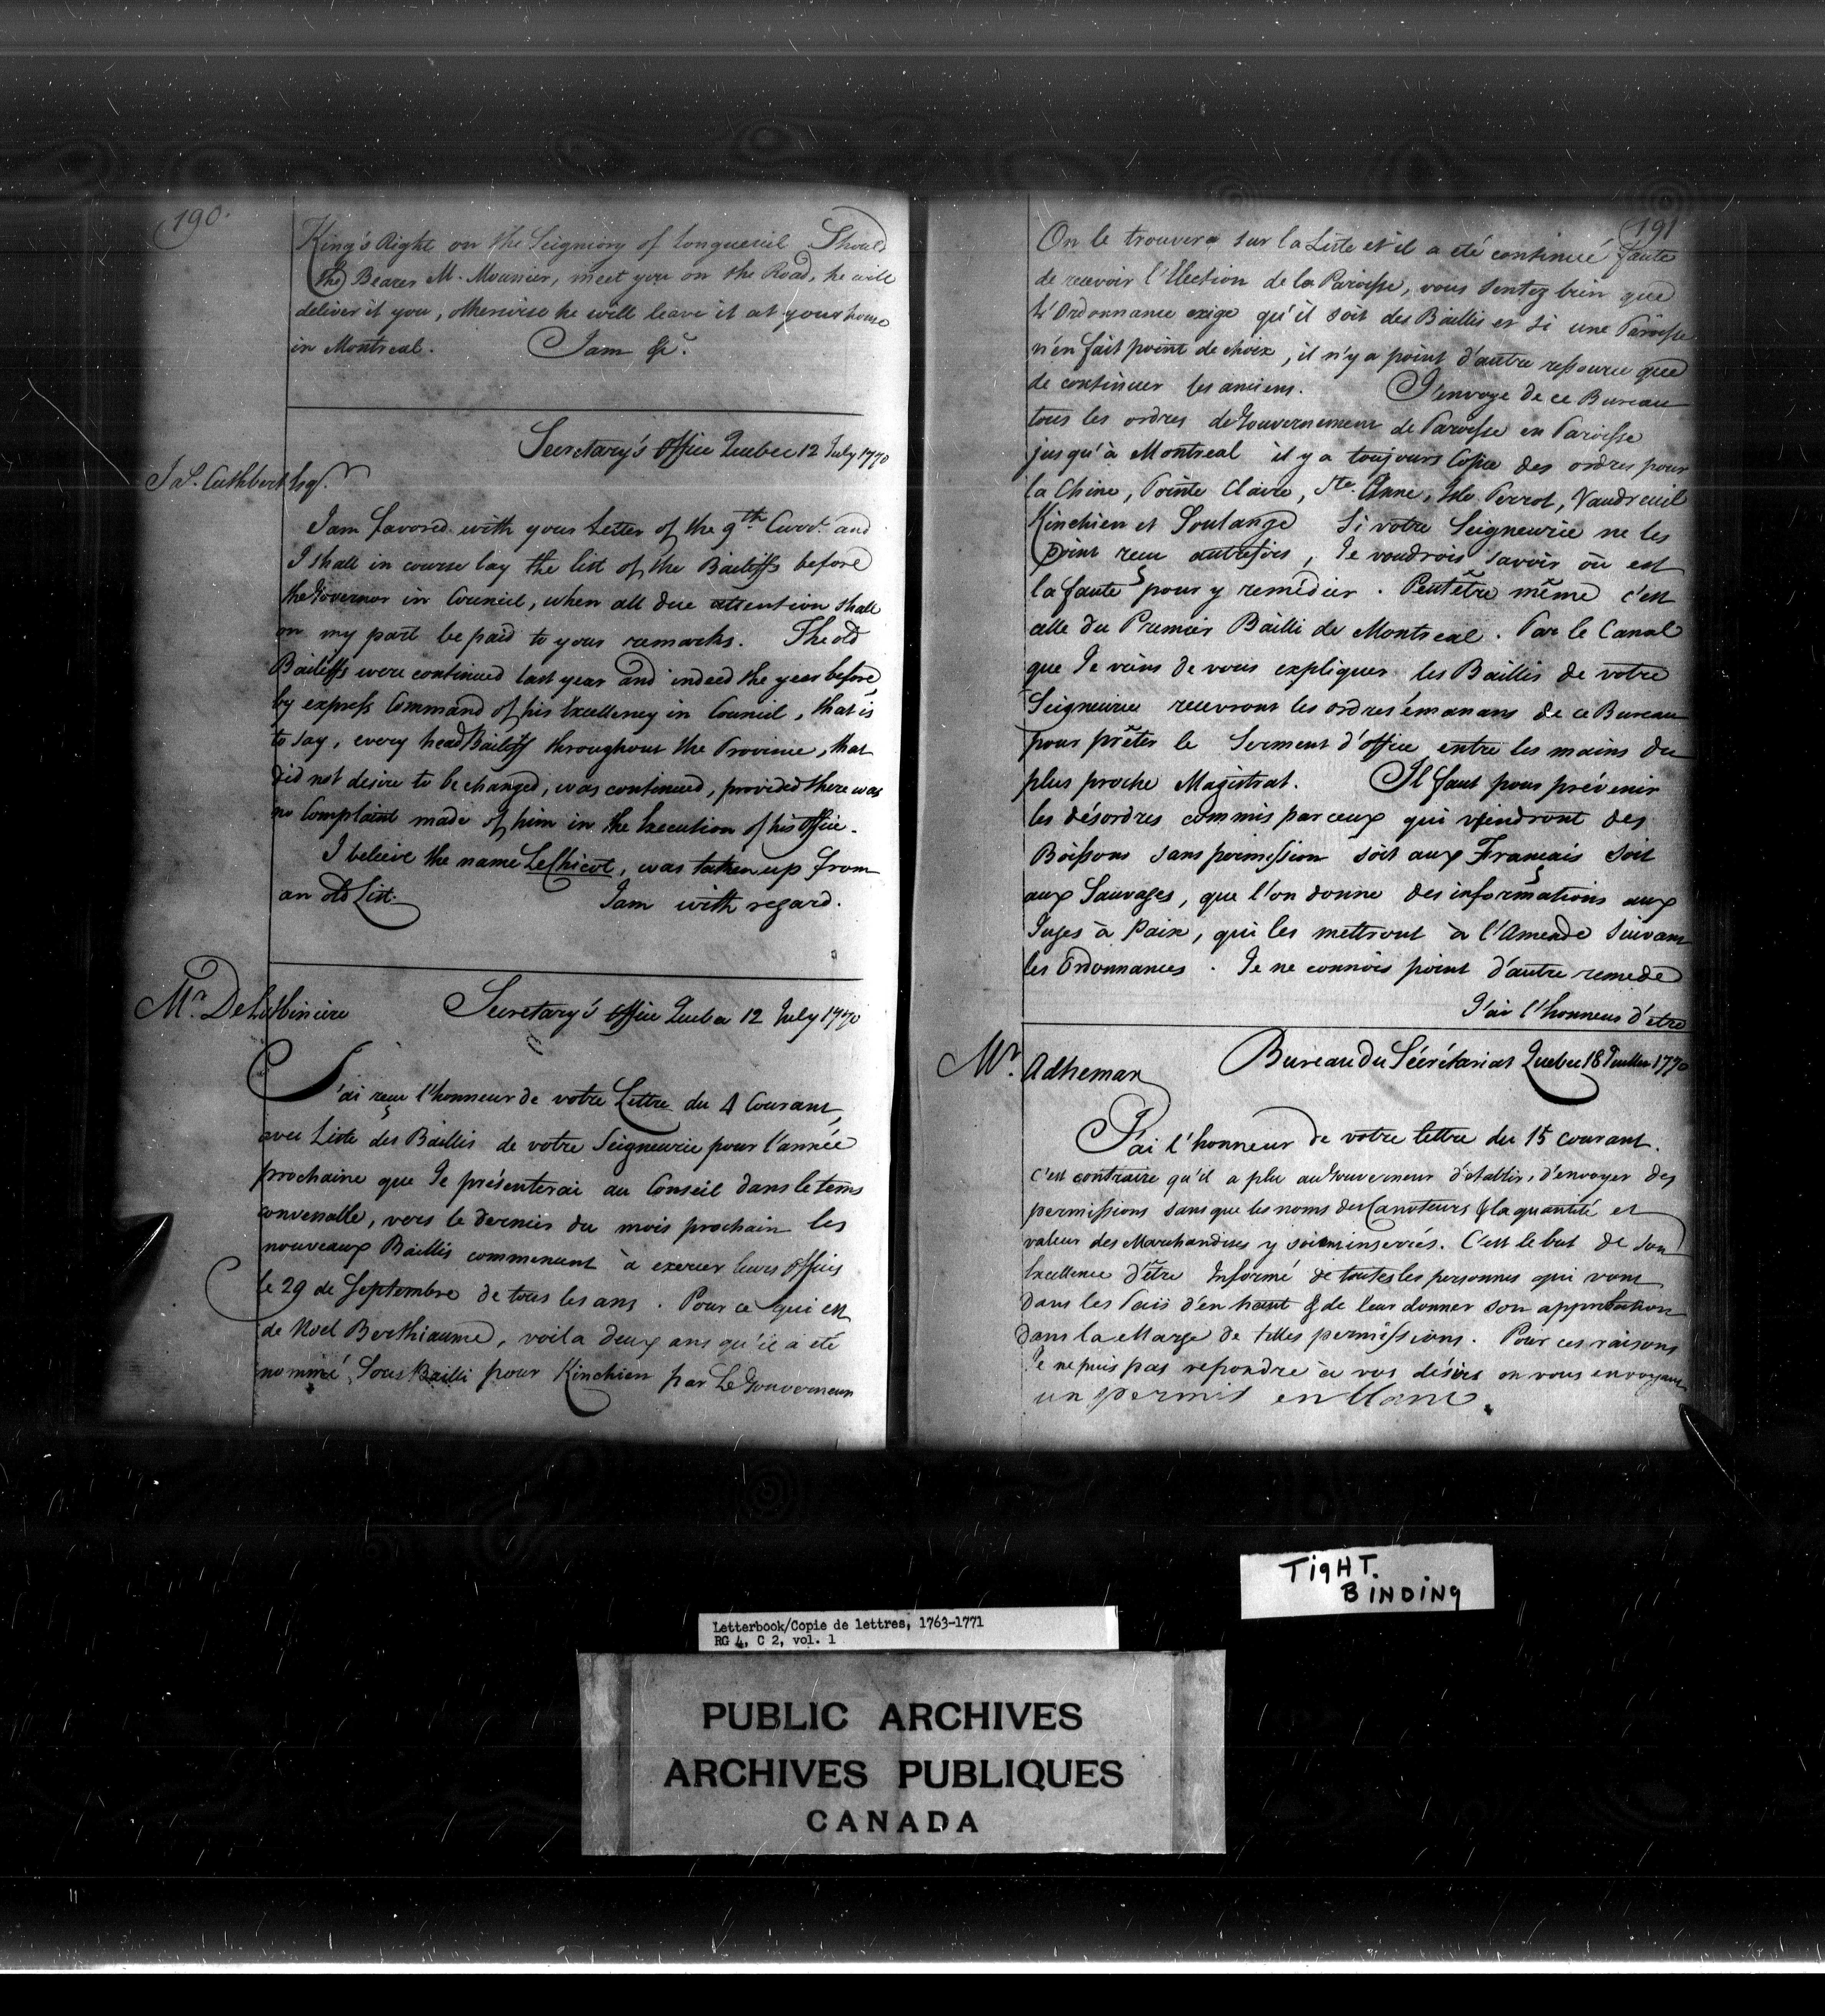 190.
King's Right on the Seigniory of Longueuil Should
the Bearer M. Mounier, meet you on the Road, he will
deliver it you, otherwise he will leave it at your house
in Montreal. I am &c.
Secretary's Office Quebec 12 July 1770
Ja.s. Cuthbert Esqr.
I am favored with your Letter of the 9th Currt. and
I shall in course lay the list of the Bailiffs before
the Governor in Council, when all due attention shall
on my part be paid to your remarks. The old
Bailiffs were continued last year and indeed the year before
by express Command of his Excellency in Council, that is
to say, every head Bailiff throughout the Province, that
did not desire to be changed, was continued, provided there was
no Complaint made of him in the Execution of his Office.
I believe the name LeChicot, was taken up from
an old List. I am with regard.
Mr. De Lotbiniere Secretary's Office Quebec 12 July 1770
J'ai reçu l'honneur de votre Lettre du 4 Courant,
avec Liste des Baillis de votre Seigneurie pour l'année
prochaine que Je présenterai au Conseil dans le tems
convenable, vers le dernier du mois prochain les
nouveaux Baillis commencent à exercer leurs offices
le 29 de Septembre de tous les ans. Pour ce qui est
de Noel Berthiaume, voila deux ans qu'il a été
nommé Sous Bailli pour Kinchien par Le Gouverneur
191
On le trouvera sur la Liste et il a été continué faute
de recevoir l'Election de la Paroisse, vous sentez bien que
L'Ordonnance exige qu'il soit des Baillis et si une Paroisse
n'en fait point de choix, il n'y a point d'autre ressource que
de continuer les anciens. J'envoye de ce Bureau
tous les ordres de Gouvernement de Paroisse en Paroisse
jusqu'à Montreal il y a toujours Copie des ordres pour
la Chine, Pointe Claire, Ste. Anne, Isle Perrot, Vaudreuil
Kinchien et Soulange Si votre Seigneurie ne les
point reçu autrefois, Je voudrois savoir où est
la faute pour y remédier. Peutêtre même c'est
celle du Premier Bailli de Montreal. Par le Canal
que Je viens de vous expliquer les Baillis de votre
Seigneurie recevront les ordres émanans de ce Bureau
pour prêter le Serment d'office entre les mains du
plus proche Magistrat. Il faut pour prévenir
les désordres commis par ceux qui vendront des
Boissons sans permission soit aux Français soit
aux Sauvages, que l'on donne des informations aux
Juges à Paix, qui les mettront à l'Amende suivant
les Ordonnances. Je ne connois point d'autre remede
J'ai l'honneur d'etre
Mr. Adhemar Bureau du Sécrétariat Quebec 18 Juillet 1770
J'ai l'honneur de votre lettre du 15 courant.
c'est contraire qu'il a plu au Gouverneur d'etablir, d'envoyer des
permissions sans que les noms des Canoteurs & la quantité et
valeur des Marchandises y soient inserrés. C'est le but de Son
Excellence d'être Informé de toutes les personnes qui vont
dans les Païs d'en haut & de leur donner son approbation
dans la Marge de telles permissions. Pour ces raisons
Je ne puis pas repondre à vos désirs en vous envoyant
un permit en blanc.
TIGHT.
BINDING
Letterbook/Copie de lettres, 1763-1771
RG 4, C 2, vol. 1
PUBLIC ARCHIVES
ARCHIVES PUBLIQUES
CANADA